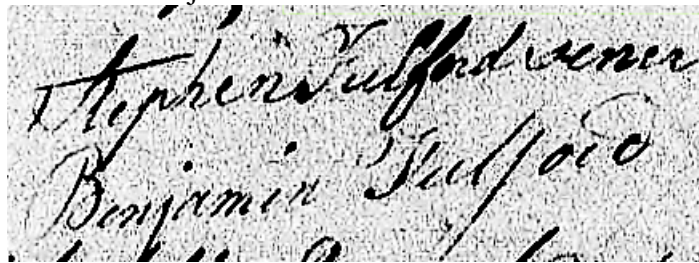 Stephen Fulford sener
Benjamin Fulford